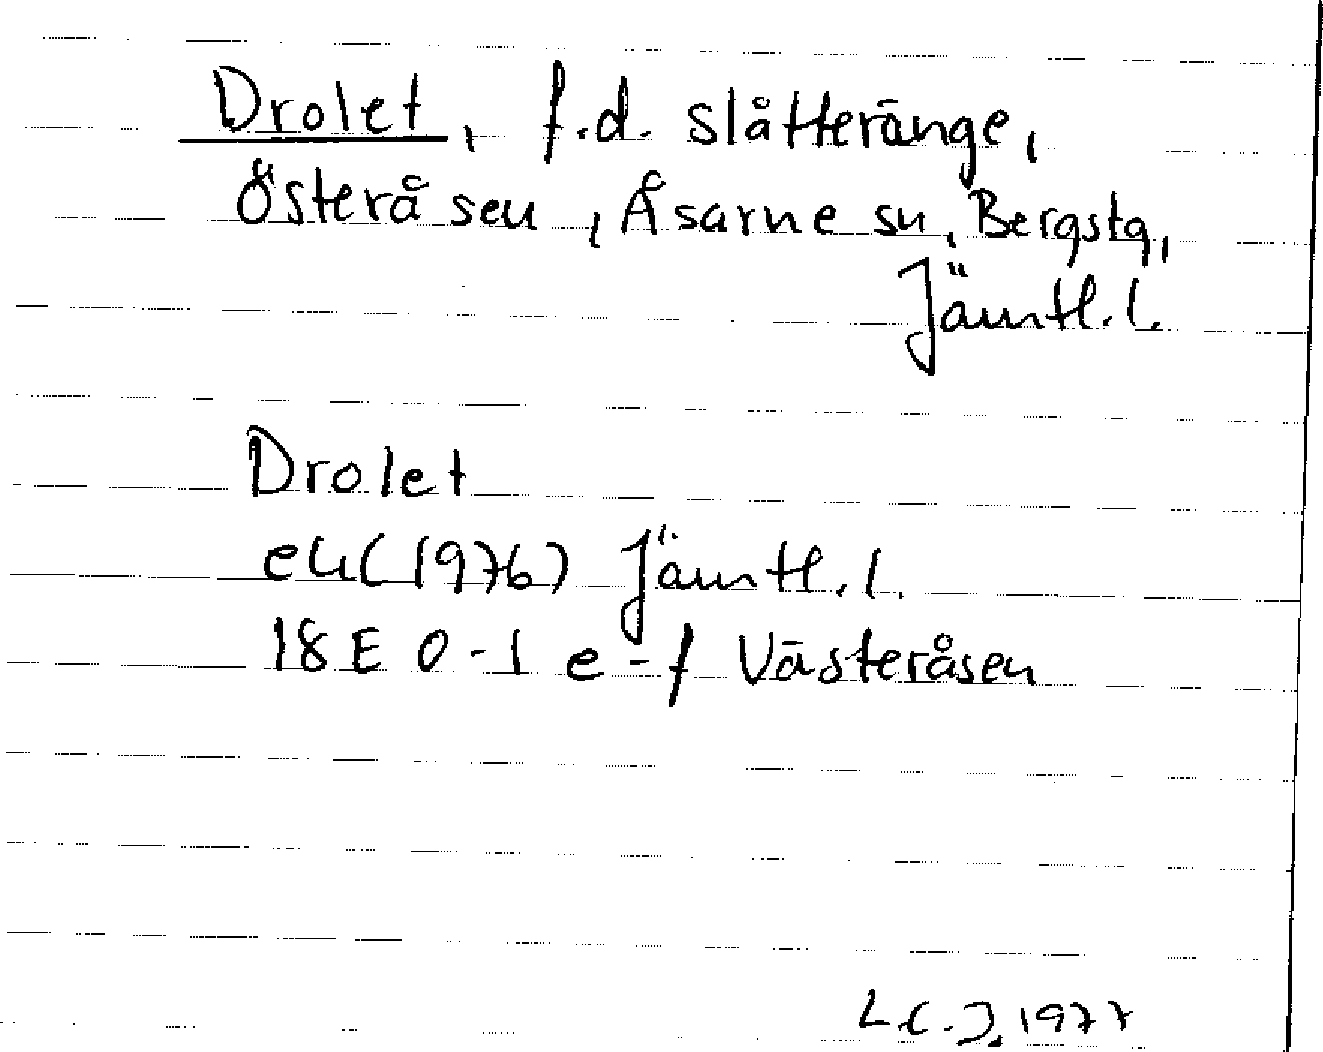 Drolet, f.d. slåtteränge,
Österåsen, Åsarne sn, Bergstg,
Jämtl.l.
Drolet
ek (1976) Jämtl.l.
18E 0-1 e-f Västeråsen
L.C.J. 1977